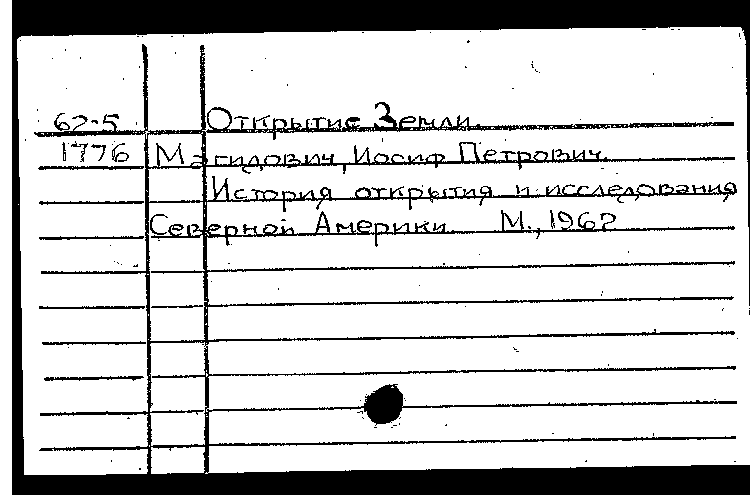 62-5 Открытие Земли.
1776 Магидович, Иосиф Петрович.
История открытия и исследования
Северной Америки. М., 1962